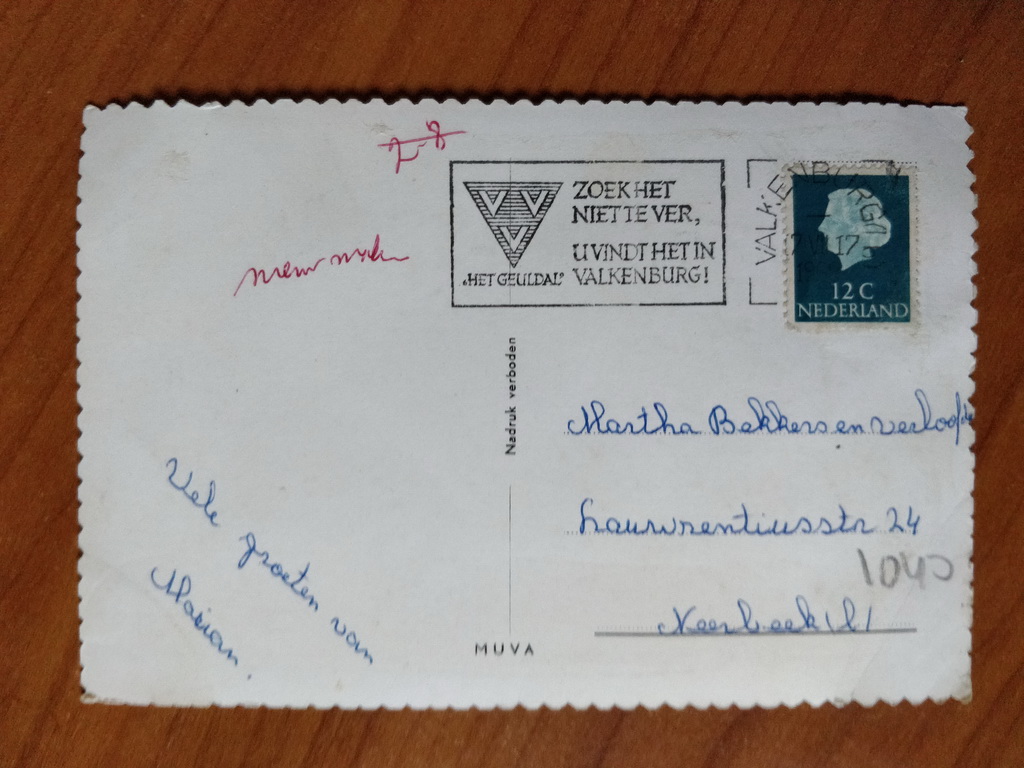 2-8
ZOEK HET
NIET TE VER,
U VINDT HET IN
VALKENBURG!
VVV
"HET GEULDAL"
VALKENBURG
17
12 C
NEDERLAND
Nadruk verboden
Martha Bekkers en verloofde
Laurentiusstr 24
1040
Neerbeek (L)
Vele groeten van
Marian.
MUVA